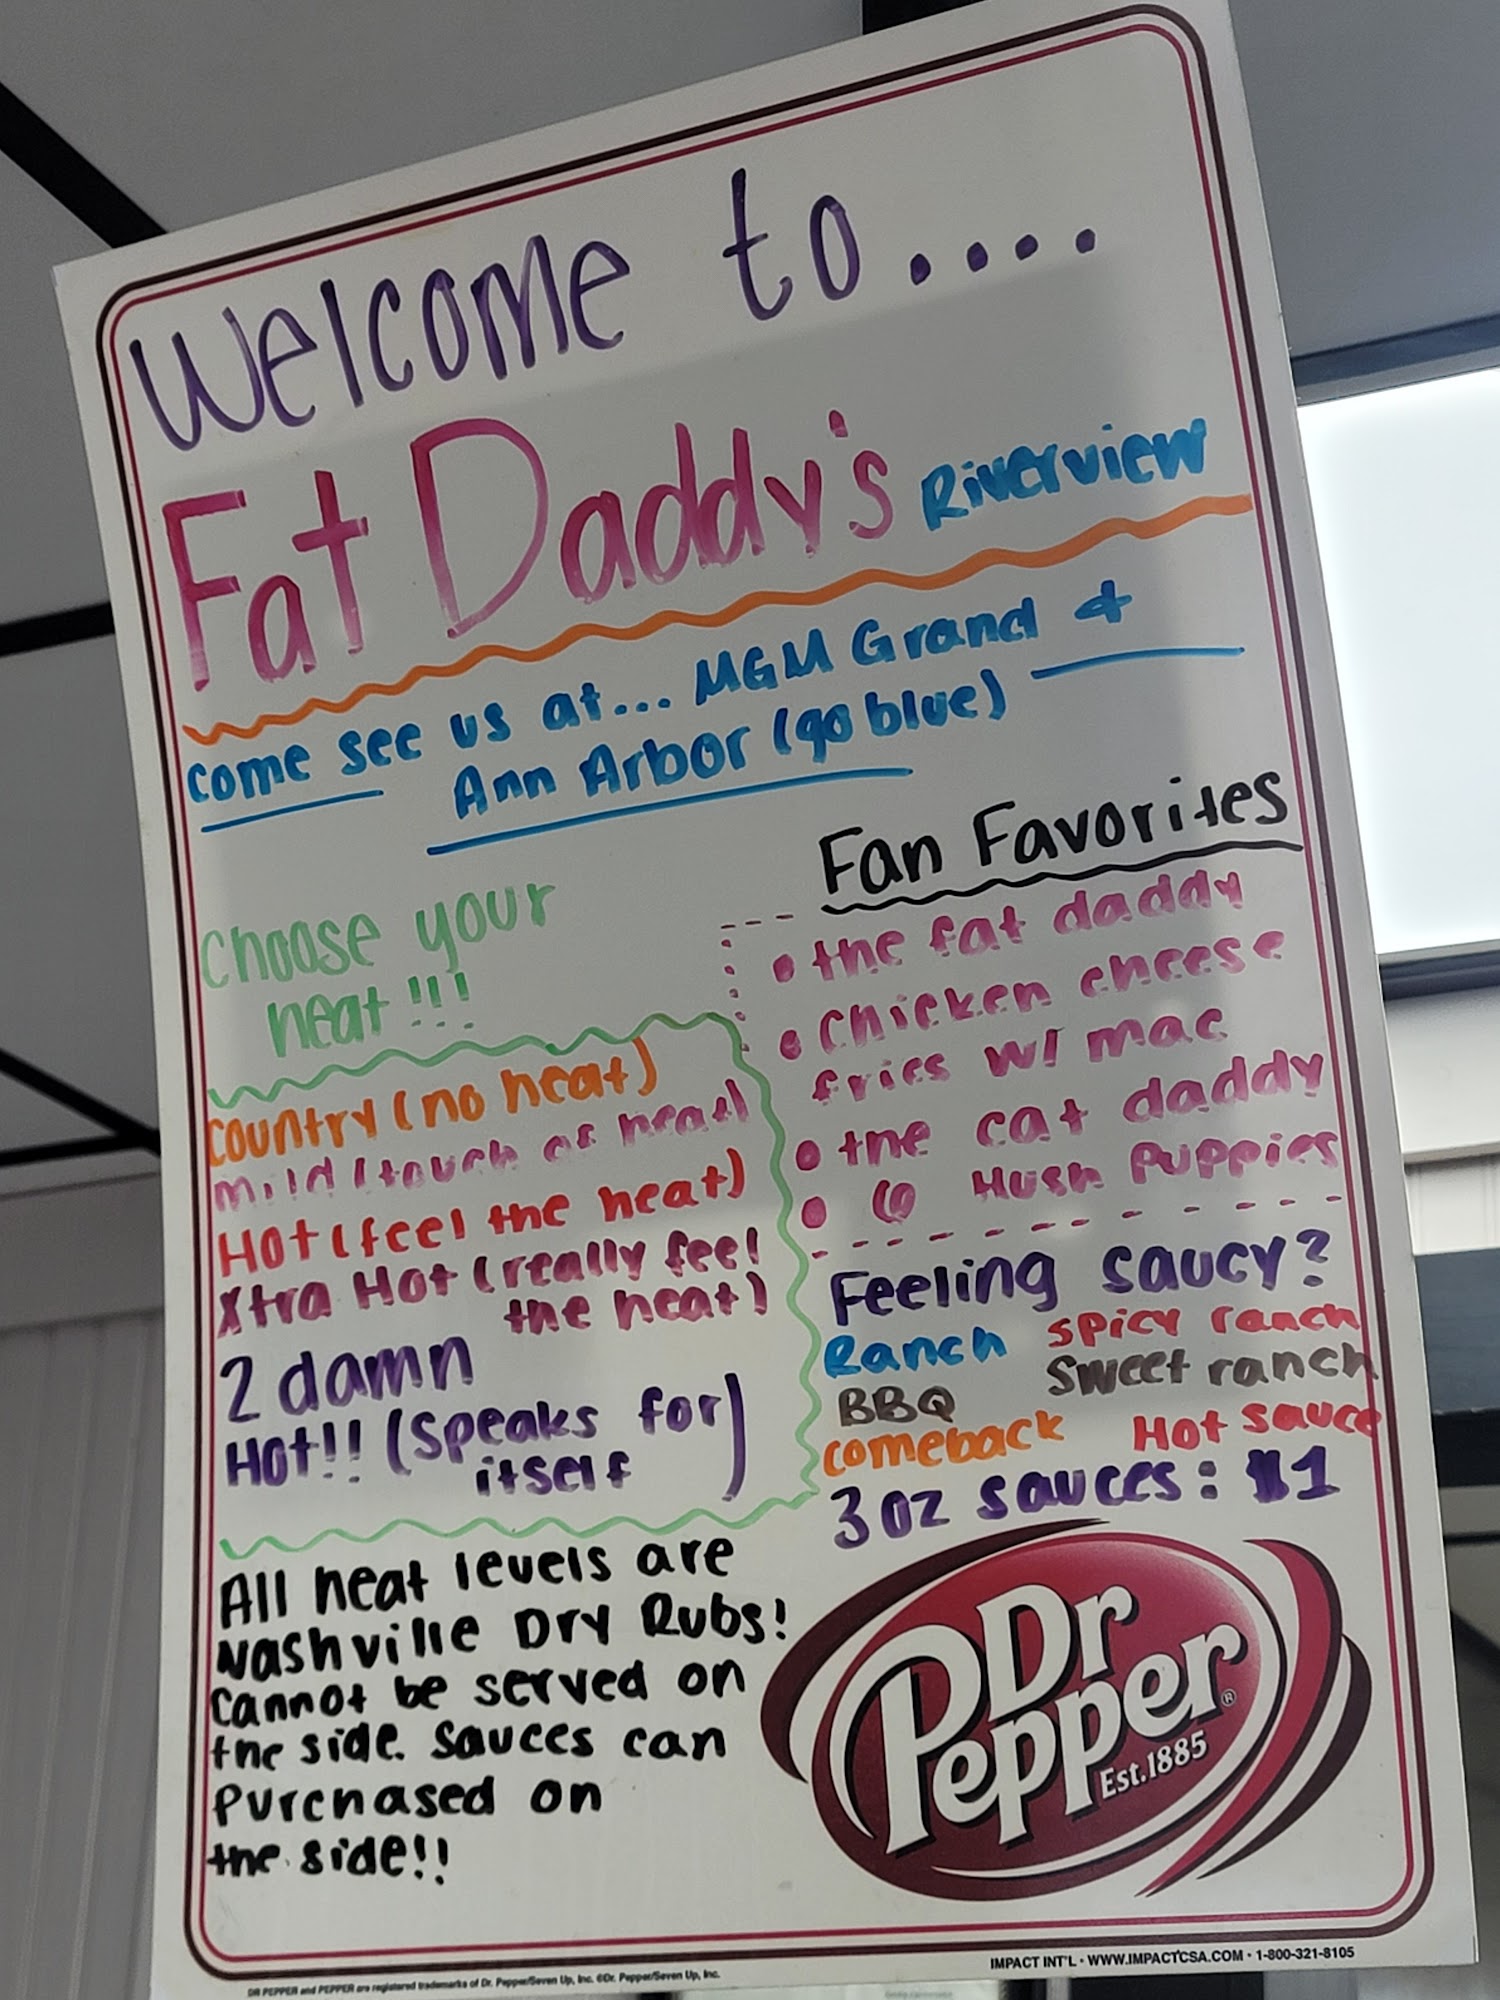 Welcome to....
Fat Daddy's Riverview
come see us at... MGM Grand &
Ann Arbor (go blue)
Choose your
heat!!!
country (no heat)
mild (touch of heat)
Hot (feel the heat)
Xtra Hot (really feel
the heat)
2 damn
Hot!! (speaks for
itself)
All heat levels are
Nashville Dry Rubs!
Cannot be served on
the side. Sauces can
purchased on
the side!!
Fan Favorites
• the fat daddy
• Chicken cheese
fries w/ mac
• the cat daddy
• Hush Puppies
Feeling saucy?
Ranch spicy ranch
BBQ Sweet ranch
comeback Hot sauce
3 oz sauces: $1
Dr
Pepper®
Est.1885
IMPACT INT'L • WWW.IMPACTCSA.COM • 1-800-321-8105
DR PEPPER and PEPPER are registered trademarks of Dr. Pepper/Seven Up, Inc. ©Dr. Pepper/Seven Up, Inc.